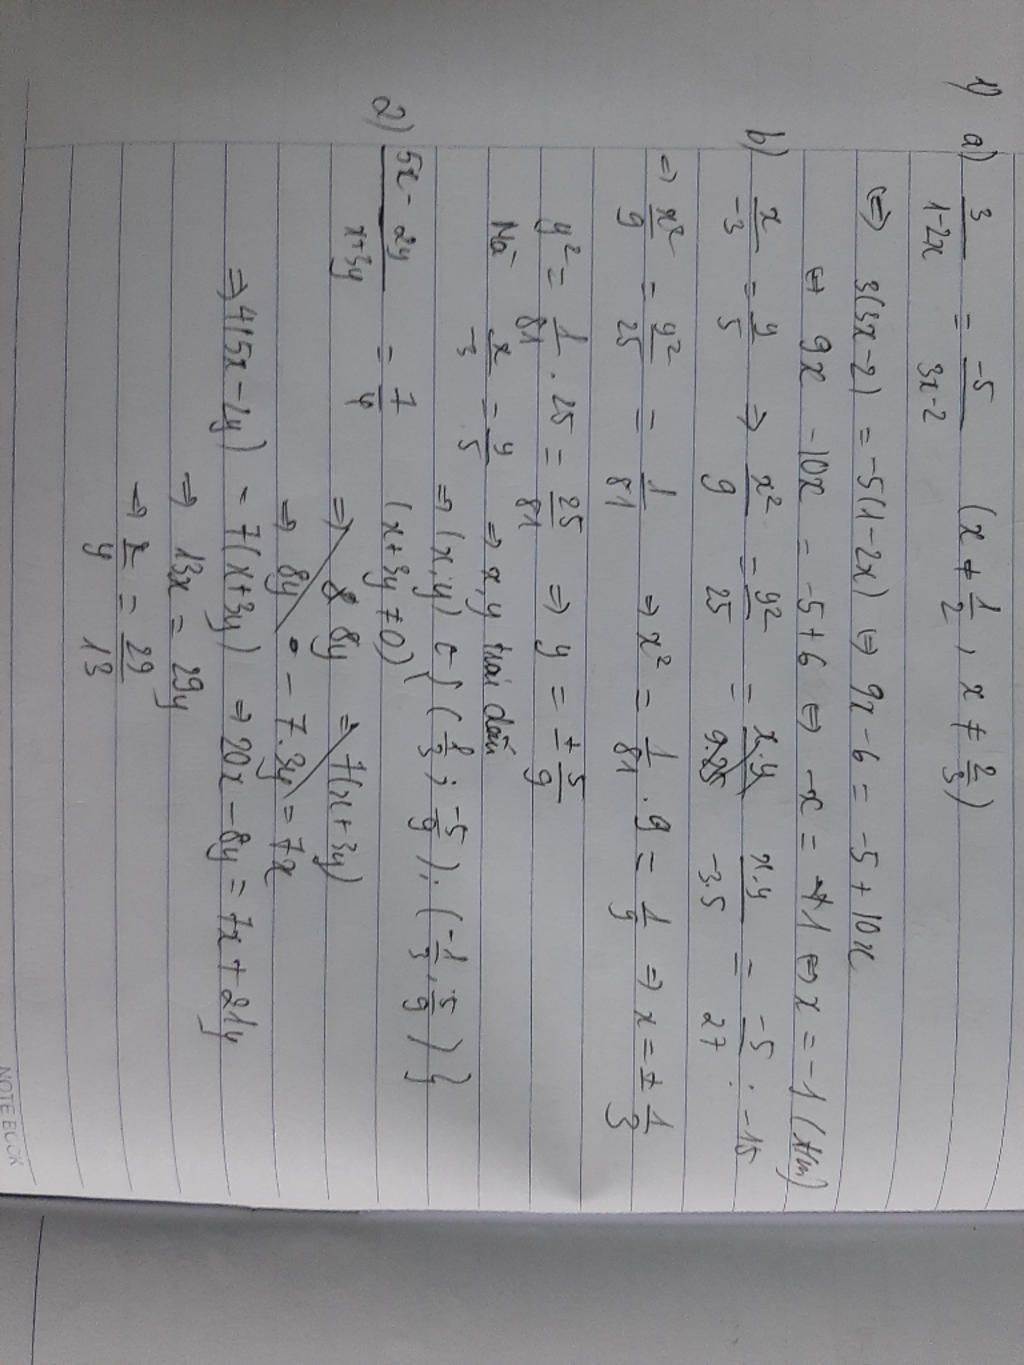 1) a) 3/(1-2x) = -5/(3x-2) (x ≠ 1/2, x ≠ 2/3)
⇔ 3(3x-2) = -5(1-2x) ⇔ 9x-6 = -5+10x
⇔ 9x -10x = -5+6 ⇔ -x = 1 ⇔ x = -1 (t/m)
b) x/-3 = y/5 ⇒ x²/9 = y²/25 = x.y/-3.5 = -5/27 : -15
⇒ x²/9 = y²/25 = 1/81 ⇒ x² = 1/81 . 9 = 1/9 ⇒ x = ± 1/3
y² = 1/81 . 25 = 25/81 ⇒ y = ± 5/9
Mà x/-3 = y/5 ⇒ x, y trái dấu
⇒ (x;y) ∈ { (1/3; -5/9); (-1/3; 5/9) }
2) 5x - 2y/x+3y = 7/4 (x+3y ≠ 0)
⇒ 8y = 7(x+3y)
⇒ 8y - 7.3y = 7x
⇒ 4(5x-2y) = 7(x+3y) ⇒ 20x - 8y = 7x + 21y
⇒ 13x = 29y
⇒ x/y = 29/13
NOTEBOOK